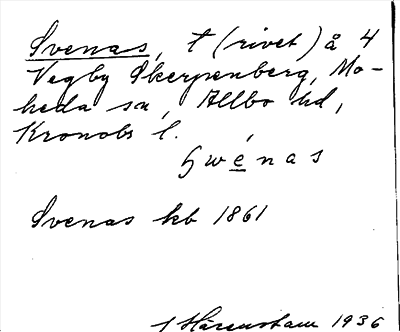 Svenas, t (rivet) å 4
Vegby Skerpenberg, Mo-
heda sn, Allbo hd,
Kronobs l.
swénas
Svenas kb 1861
1936